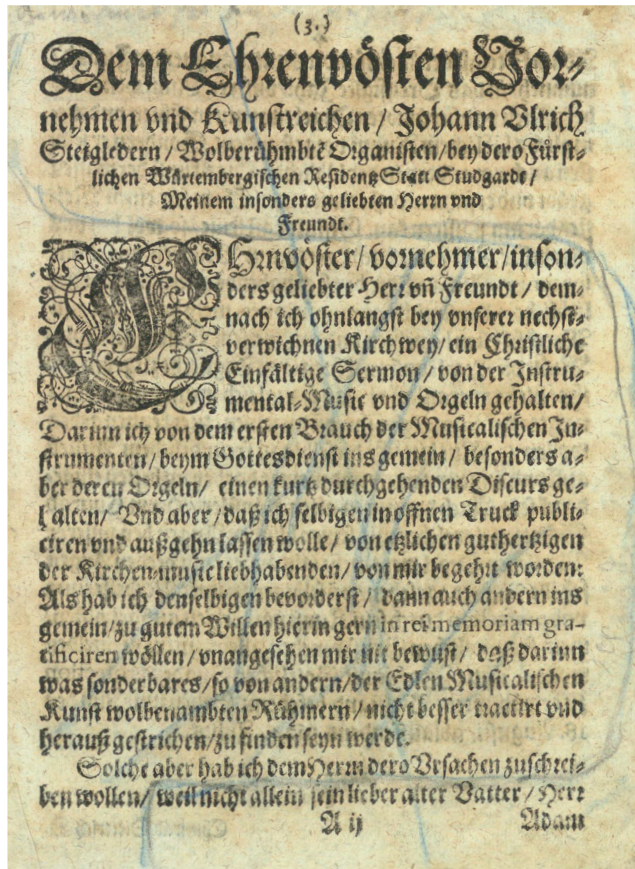 (3.)
Dem Ehrenvösten Vor⸗
nehmen vnd Kunstreichen / Johann Vlrich
Steigledern / Wolberühmbtē Organisten / bey dero Fürst⸗
lichen Würtembergischen Residentz Statt Studgardt /
Meinem insonders geliebten Herrn vnd
Freundt.
EHrnvöster / vornehmer / inson⸗
ders geliebter Herr vñ Freundt / dem⸗
nach ich ohnlangst bey vnserer nechst⸗
verwichnen Kirchwey / ein Christliche
Einfältige Sermon / von der Instru⸗
mental-Music vnd Orgeln gehalten /
Darinn ich von dem ersten Brauch der Musicalischen In⸗
strumenten / beym Gottesdienst ins gemein / besonders a⸗
ber deren Orgeln / einen kurtz durchgehenden Discurs ge⸗
halten / Vnd aber / daß ich selbigen in offnen Truck publi⸗
ciren vnd außgehn lassen wolle / von etzlichen guthertzigen
der Kirchen-music liebhabenden / von mir begehrt worden:
Als hab ich denselbigen bevorderst / dann auch andern ins
gemein / zu gutem Willen hierin gern in rei memoriam gra⸗
tificiren wöllen / vnangesehen mir nit bewust / daß darinn
was sonderbares / so von andern / der Edlen Musicalischen
Kunst wolbenambten Rühmern / nicht besser tractirt vnd
herauß gestrichen / zu finden seyn werde.
Solche aber hab ich dem Herrn dero Vrsachen zuschrei⸗
ben wollen / weil nicht allein sein lieber alter Vatter / Herr
A ij Adam